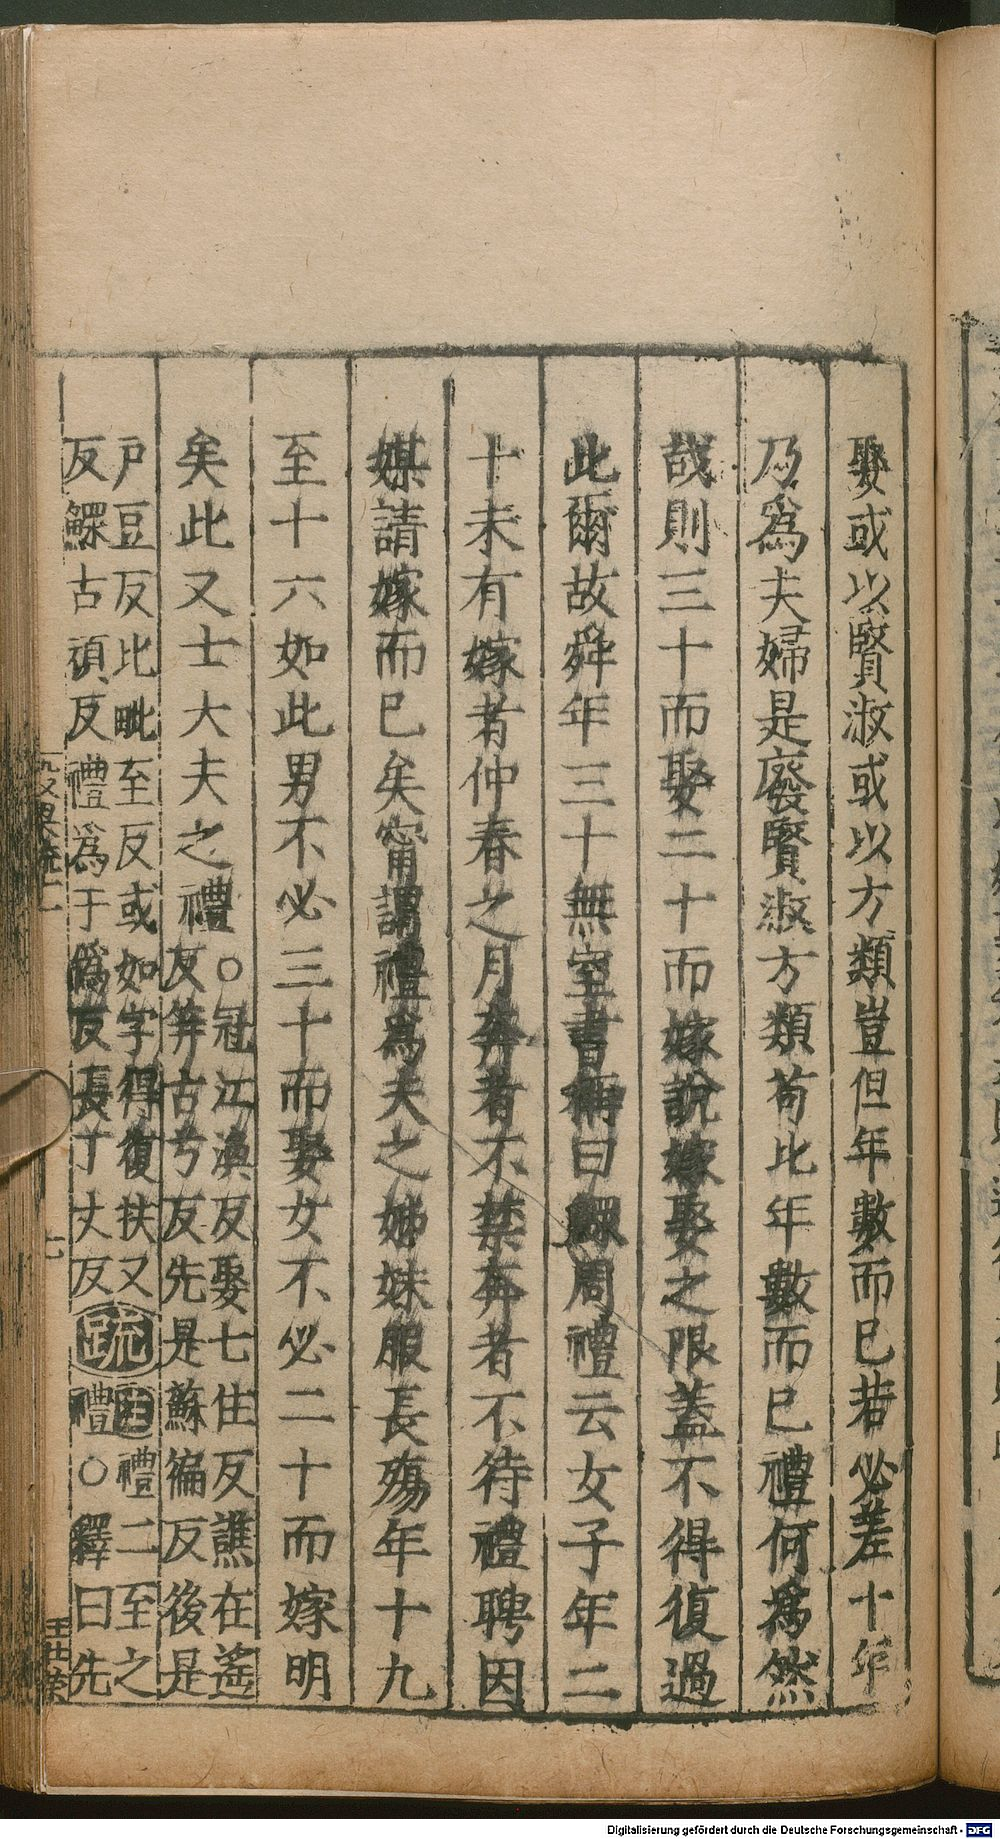 娶或以賢淑或以方類豈但年數而已若必差十年
乃爲夫婦是廢賢淑方類苟比年數而已禮何爲然
哉則三十而娶二十而嫁說嫁娶之限蓋不得復過
此爾故舜年三十無室書稱曰鰥周禮云女子年二
十未有嫁者仲春之月奔者不禁奔者不待禮聘因
媒請嫁而已矣甯謂禮爲夫之姊妹服長殤年十九
至十六如此男不必三十而娶女不必二十而嫁明
矣此又士大夫之禮
○冠江渙反娶七住反譙在遥
反笄古兮反先是蘇徧反後是
戶豆反比毗至反或如字得復扶又
反鰥古頑反禮爲于僞反長丁丈反
疏
註禮二至之
禮○釋曰先
七
Digitalisierung gefördert durch die Deutsche Forschungsgemeinschaft - DFG